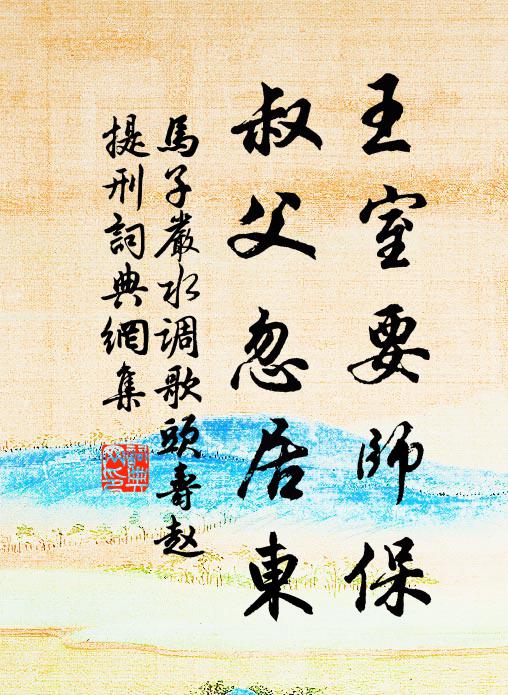 王室要師保
叔父忽居東
馬子嚴水调歌頭壽赵
提刑詞典網集